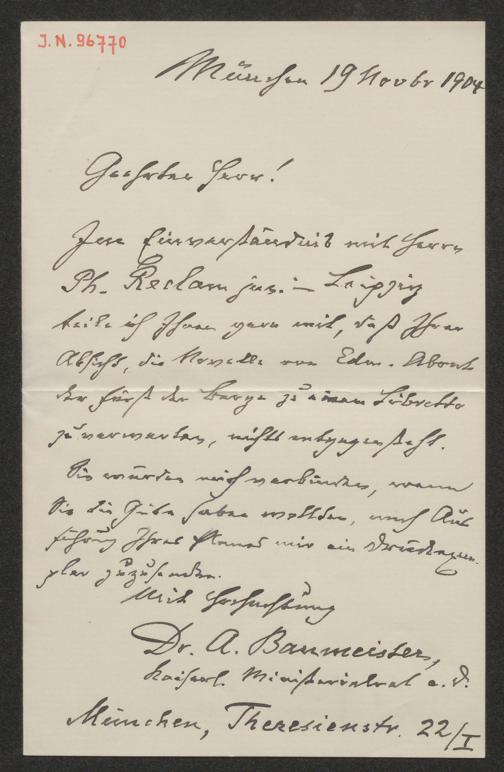 J.N. 96770
München 19 Novbr 1904
Geehrter Herr!
Im Einverständnis mit Herrn
Ph. Reclam jun. in Leipzig
teile ich Ihnen gern mit, daß Ihrer
Absicht, die Novelle von Edm. About
der Fürst der Berge zu einem Libretto
zu verwerten, nichts entgegensteht.
Sie würden mich verbinden, wenn
Sie die Güte haben wollten, nach Aus
führung Ihres Planes mir ein Druckexem-
plar zuzusenden.
Mit Hochachtung
Dr. A. Baumeister,
Kaiserl. Ministerialrat a. D.
München, Theresienstr. 22/I